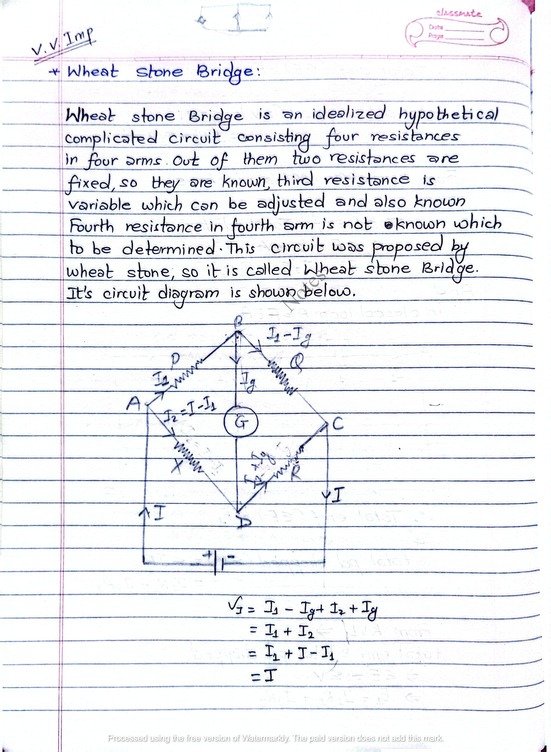 classmate
Date
Page
V.V. Imp
* Wheat stone Bridge:
Wheat stone Bridge is an idealized hypothetical
complicated circuit consisting four resistances
in four arms. Out of them two resistances are
fixed, so they are known, third resistance is
variable which can be adjusted and also known
Fourth resistance in fourth arm is not known which
to be determined. This circuit was proposed by
wheat stone, so it is called Wheat stone Bridge.
It's circuit diagram is shown below.
Notes
B
I1-Ig
P
Q
I1
Ig
A
I2=I-I1
G
C
X
I2+Ig
R
I
D
I
+ -
I = I1 - Ig + I2 + Ig
= I1 + I2
= I2 + I - I1
= I
Processed using the free version of Watermarkly. The paid version does not add this mark.